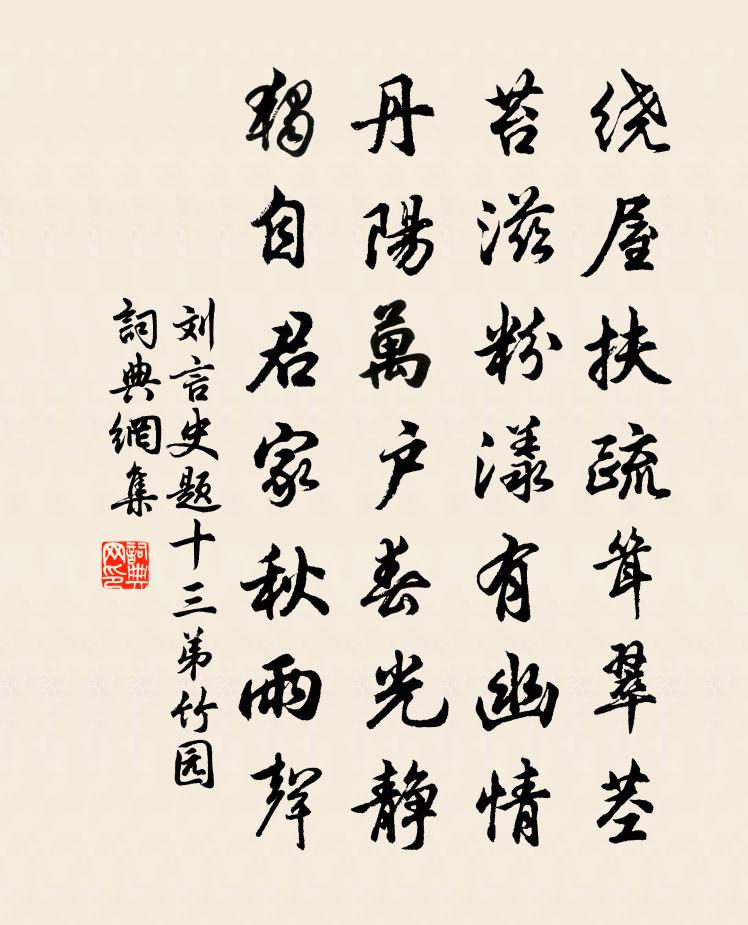 绕屋扶疏耸翠茎
苔滋粉漾有幽情
丹陽萬户春光静
獨自君家秋雨聲
刘言史题十三弟竹园
詞典網集
詞典网印